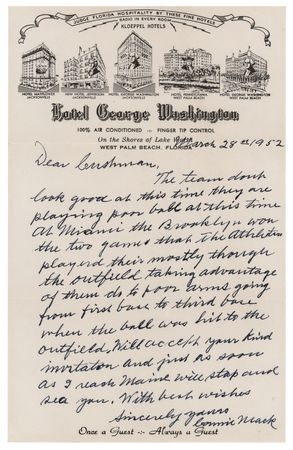 ENJOY FLORIDA HOSPITALITY BY THESE FINE HOTELS
RADIO IN EVERY ROOM
KLOEPPEL HOTELS
HOTEL MAYFLOWER
JACKSONVILLE
NEW HOTEL JEFFERSON
JACKSONVILLE
HOTEL GEORGE WASHINGTON
JACKSONVILLE
HOTEL PENNSYLVANIA
WEST PALM BEACH
HOTEL GEORGE WASHINGTON
WEST PALM BEACH
Hotel George Washington
100% AIR CONDITIONED - FINGER TIP CONTROL
On the Shores of Lake Worth
WEST PALM BEACH, FLORIDA
March 28th 1952
Dear Cushman,
The team dont
look good at this time they are
playing poor ball at this time
At Miami the Brooklyn won
the two games that the Athletics
played their mostly though
the outfield taking advantage
of them do to poor arms going
from first base to third base
when the ball was hit to the
outfield. Will accept your kind
invitaton and just as soon
as I reach Maine will stop and
see you. With best wishes
Sincerely yours
Connie Mack
Once a Guest -:- Always a Guest